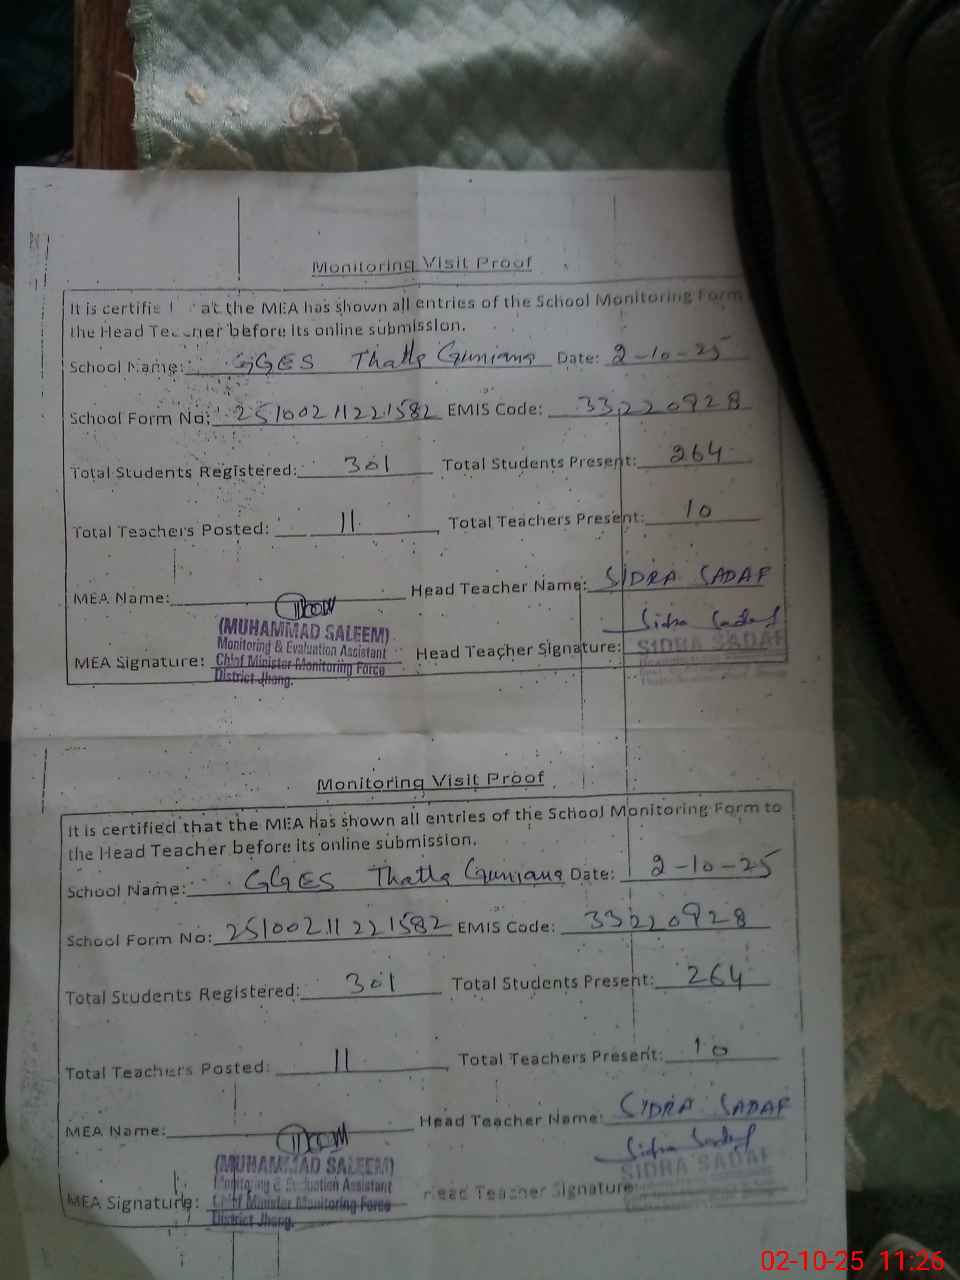 Monitoring Visit Proof
It is certifie at the MEA has shown all entries of the School Monitoring Form
the Head Teacher before its online submission.
School Name: GGES Thatta Gunjana Date: 2-10-25
School Form No: 25100211221582 EMIS Code: 33220928
Total Students Registered: 301 Total Students Present: 264
Total Teachers Posted: 11 Total Teachers Present: 10
MEA Name: Head Teacher Name: SIDRA SADAF
(MUHAMMAD SALEEM)
Monitoring & Evaluation Assistant
MEA Signature: Chief Minister Monitoring Force
District Jhang.
Head Teacher Signature: Sidra Sadaf
SIDRA SADAF
Monitoring Visit Proof
It is certified that the MEA has shown all entries of the School Monitoring Form to
the Head Teacher before its online submission.
School Name: GGES Thatta Gunjana Date: 2-10-25
School Form No: 25100211221582 EMIS Code: 33220928
Total Students Registered: 301 Total Students Present: 264
Total Teachers Posted: 11 Total Teachers Present: 10
MEA Name: Head Teacher Name: SYDRA SADAF
(MUHAMMAD SALEEM)
Monitoring & Evaluation Assistant
MEA Signature: Chief Minister Monitoring Force
District Jhang.
Head Teacher Signature: Sidra Sadaf
SIDRA SADAF
02-10-25 11:26